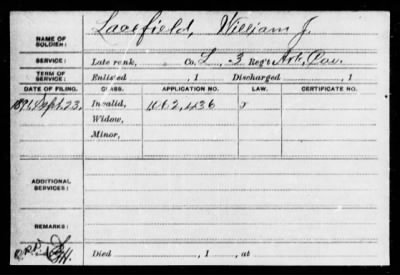 NAME OF SOLDIER: Lacefield, William J.
SERVICE: Late rank, Co. L, 3 Reg't Ark. Cav.
TERM OF SERVICE: Enlisted , 1 Discharged , 1
DATE OF FILING. CLASS. APPLICATION NO. LAW. CERTIFICATE NO.
1891, Sept. 23. Invalid, 1062,436 x
Widow,
Minor,
ADDITIONAL SERVICES:
REMARKS:
Died , 1 , at